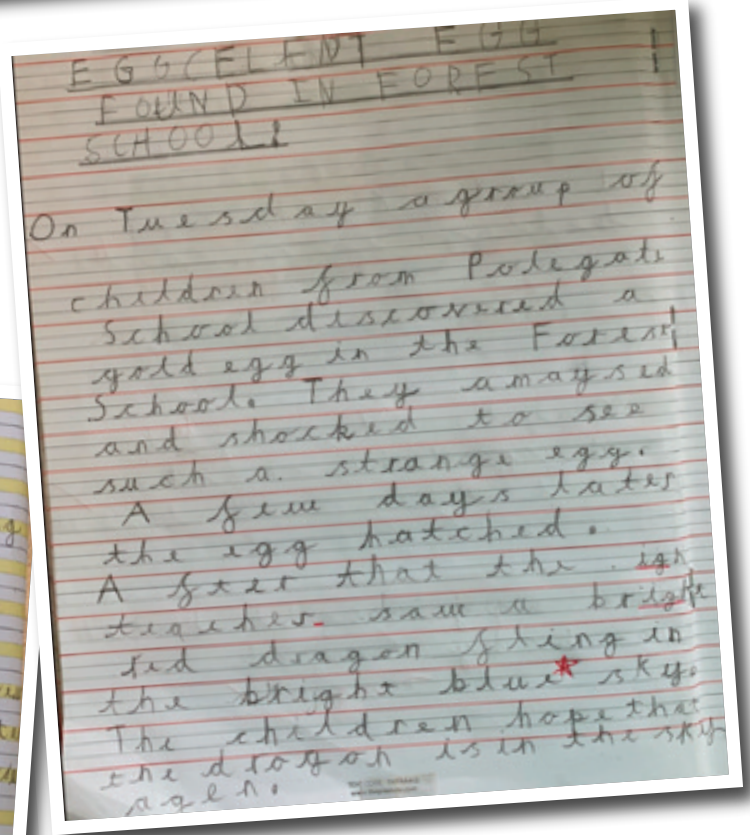 EGGCELENT EGG
FOUND IN FOREST
SCHOOL!!
On Tuesday a group of
children from Polegate
School discovered a
gold egg in the Forest
School. They amaysed
and shocked to see
such a strange egg.
A few days later
the egg hatched.
After that the igh
teacher saw a bright
red dragon fling in
the bright blue sky.
The children hope that
the dragon is in the sky
agen.